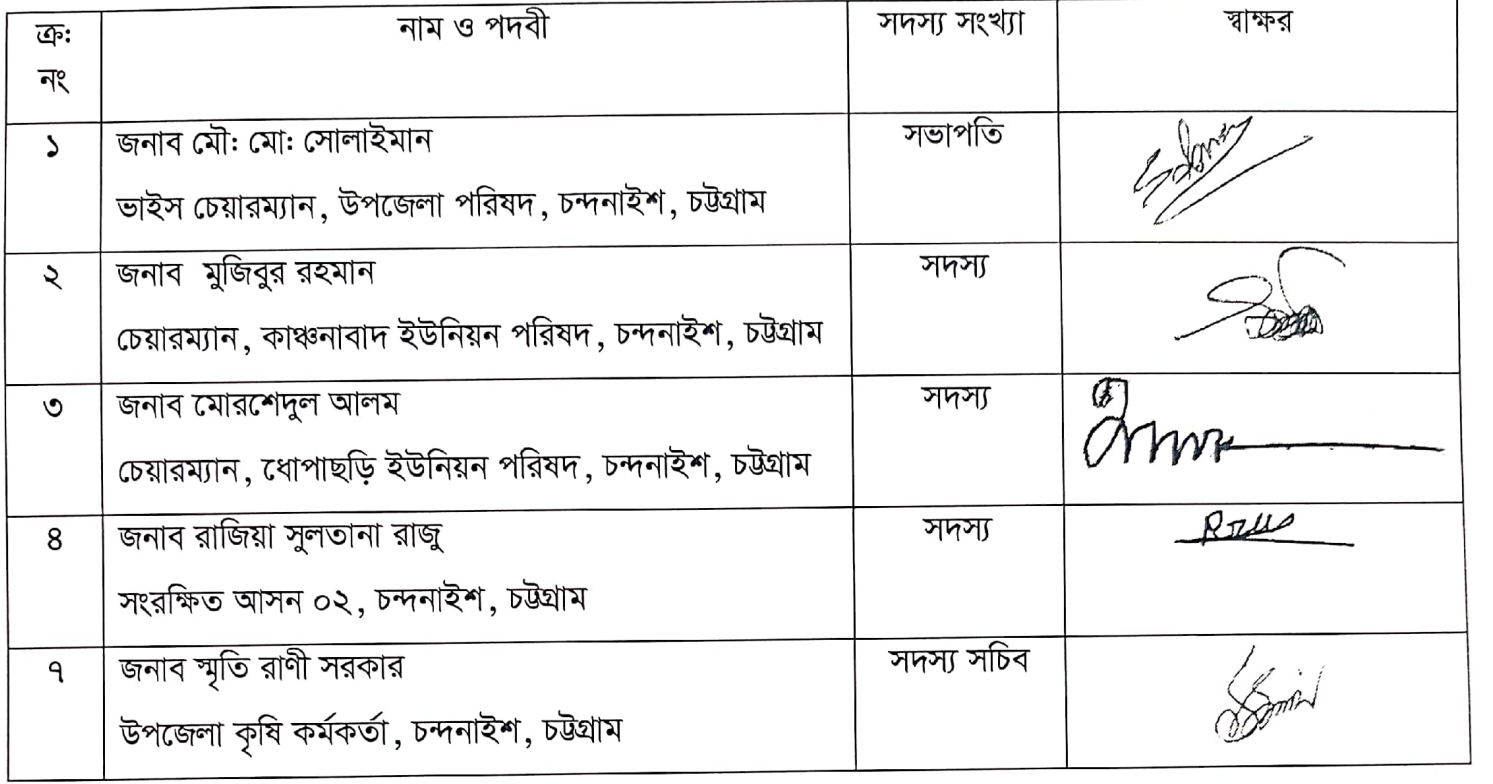 ক্রঃ নাম ও পদবী সদস্য সংখ্যা স্বাক্ষর
নং
১ জনাব মৌঃ মোঃ সোলাইমান সভাপতি
ভাইস চেয়ারম্যান, উপজেলা পরিষদ, চন্দনাইশ, চট্টগ্রাম
২ জনাব মুজিবুর রহমান সদস্য
চেয়ারম্যান, কাঞ্চনাবাদ ইউনিয়ন পরিষদ, চন্দনাইশ, চট্টগ্রাম
৩ জনাব মোরশেদুল আলম সদস্য
চেয়ারম্যান, ধোপাছড়ি ইউনিয়ন পরিষদ, চন্দনাইশ, চট্টগ্রাম
৪ জনাব রাজিয়া সুলতানা রাজু সদস্য
সংরক্ষিত আসন ০২, চন্দনাইশ, চট্টগ্রাম
৭ জনাব স্মৃতি রাণী সরকার সদস্য সচিব
উপজেলা কৃষি কর্মকর্তা, চন্দনাইশ, চট্টগ্রাম